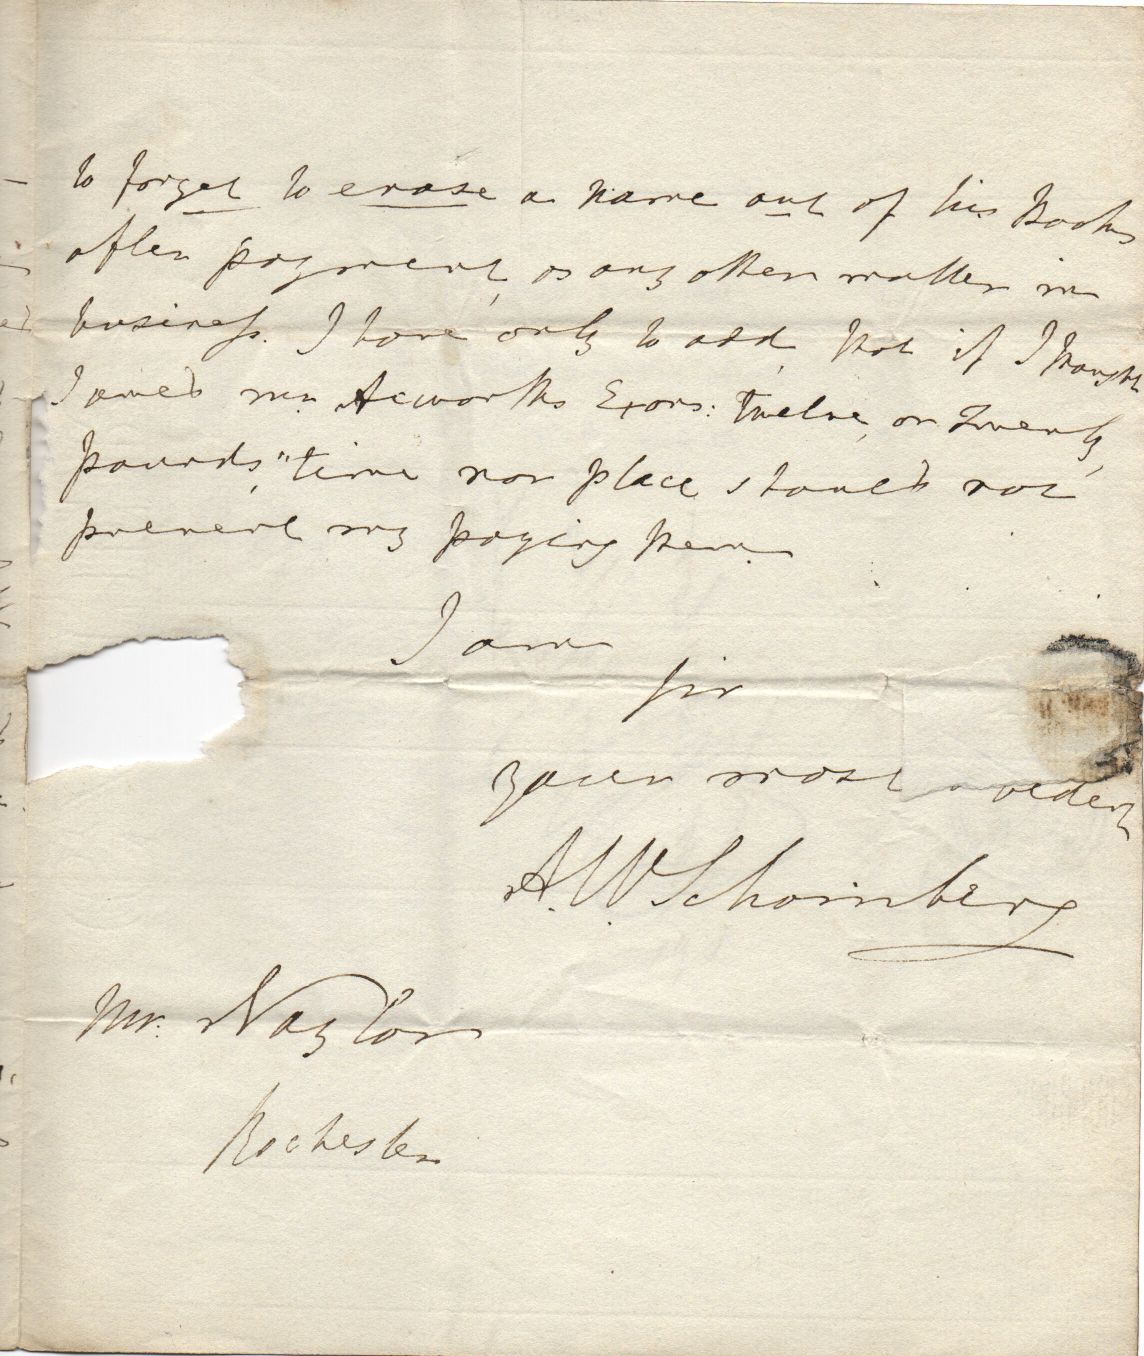 to forget to erase a name out of his Books
after payment, as any other matter in
business. I have only to add, that if I thought
I owed Mr. Acworths Exors: twelve, or twenty
pounds, "time nor place should not
prevent my paying them
I am
Sir
your most obedt
A. W. Schomberg
Mr. Naylor
Rochester